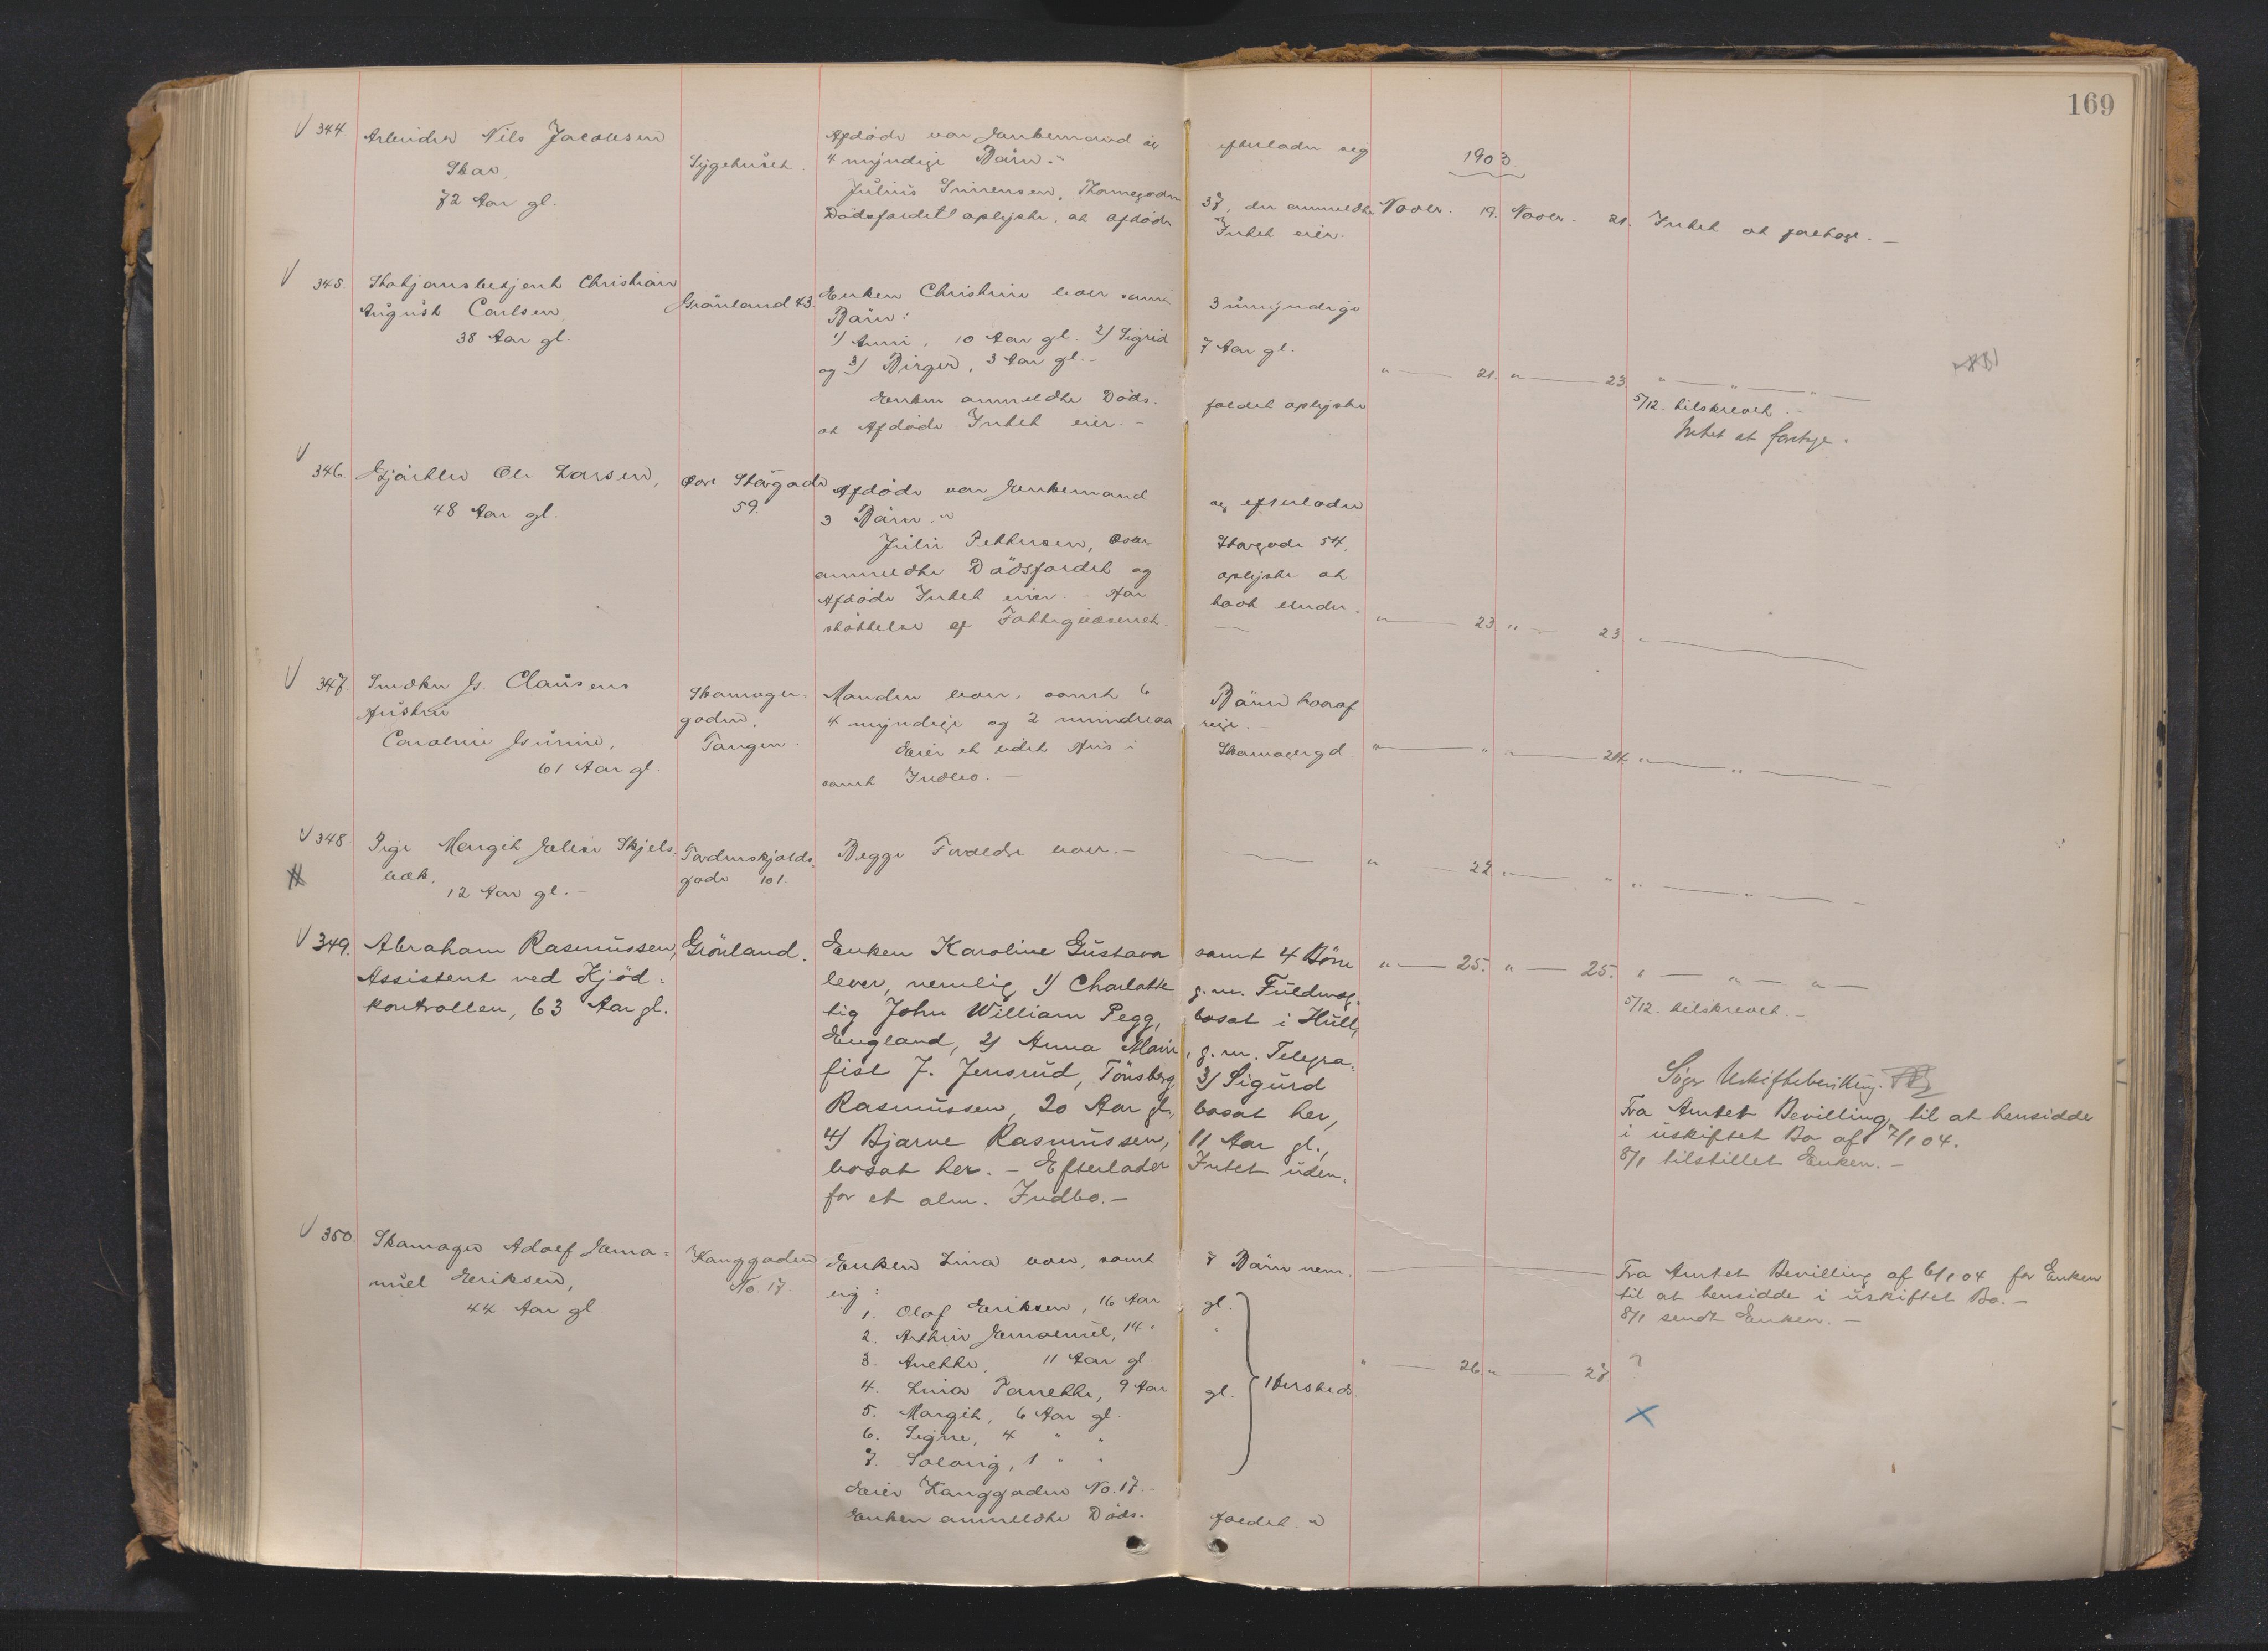 169
1903
344. Arbeider Nils Jacobsen
Skar,
72 Aar gl.
Sygehuset.
Afdøde var Enkemand og efterlader sig
4 myndige Børn. -
Julius Simensen, Thornegaden 37, der anmeldte
Dødsfaldet oplyste, at Afdøde Intet eier.
Novbr. 19. Novbr. 21. Intet at foretage. -
345. Stationsbetjent Christian
August Carlsen,
38 Aar gl.
Grønland 43.
Enken Christine lever samt 3 umyndige
Børn:
1) Anni, 10 Aar gl. 2) Sigrid 7 Aar gl.
og 3) Birger, 3 Aar gl. -
Enken anmeldte Døds- faldet oplyste
at Afdøde Intet eier. -
" 21. " 23. " " "
5/12. tilskrevet. -
Intet at foretage.
346. Gjørtler Ole Larsen,
48 Aar gl.
Øvre Storgade
59.
Afdøde var Enkemand og efterlader
3 Børn. "
Julie Pettersen, Øvre Storgade 54,
anmeldte Dødsfaldet og oplyste at
Afdøde Intet eier. - Har havt Under-
støttelse af Fattigvæsenet.
" 23. " 23. "
347. Snedker Js. Clausens
Hustru
Caroline Gurine,
61 Aar gl.
Skomager-
gaden,
Tangen.
Manden lever, samt 6 Børn hvoraf
4 myndige og 2 mindreaa rige. -
Eier et lidet Hus i Skomagergd
samt Indbo. -
" " " 24. " "
348. Pige Margit Jolise Skjels-
bæk,
12 Aar gl. -
Tordenskjolds-
gade 101.
Begge Forældre lever. -
" 22. " " " "
349. Abraham Rasmussen,
Assistent ved Kjød-
kontrollen, 63 Aar gl.
Grönland.
Enken Karoline Gustava samt 4 Börn
lever, nemlig 1) Charlotte g. m. Fuldmæg-
tig John William Pegg, bosat i Hull,
England, 2) Anna Marie, g. m. Telegra-
fist J. Jensrud, Tönsberg, 3) Sigurd
Rasmussen, 20 Aar gl., bosat her,
4) Bjarne Rasmussen, 11 Aar gl.,
bosat her. - Efterlader Intet uden-
for et alm. Indbo. -
" 25. " 25. " " "
5/12. tilskrevet. -
Søger Uskiftebevilling.
Fra Amtet Bevilling til at hensidde
i uskiftet Bo af 7/1 04.
8/1 tilstillet Enken. -
350. Skomager Adolf Jema-
nuel Eriksen,
44 Aar gl.
Konggaden
No. 17.
Enken Lina lever, samt 7 Børn nem-
lig:
1. Olaf Eriksen, 16 Aar gl.
2. Arthur Jemanuel, 14 " "
3. Anette, 11 Aar gl.
4. Lina Tanette, 9 Aar gl.
5. Margit, 6 Aar gl.
6. Signe, 4 " "
7. Solveig, 1 " "
Hersteds.
Eier Konggaden No. 17. -
Enken anmeldte Døds- faldet. "
" 26. " 27
Fra Amtet Bevilling af 6/1 04 for Enken
til at hensidde i uskiftet Bo. -
8/1 sendt Enken. -